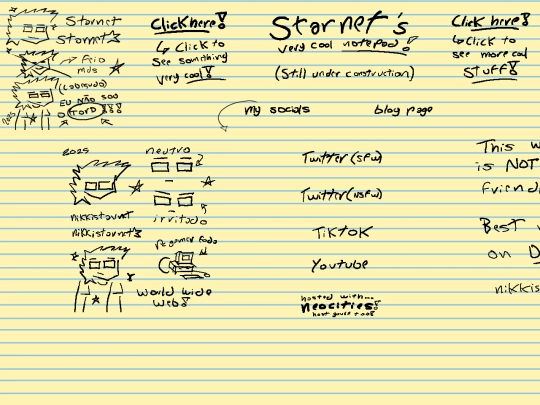 Starnet
Starnet's
Feio
mds
(Lobequdo)
EU NÃO SOU
O TORD
2025
Click here!
↳ Click to
see something
very cool!
Starnet's
very cool notepad!
(Still under construction)
my socials
blog page
Click here!
↳ Click to
see more cool
STUFF!
2025
neutro
irritado
nikkistarnet
nikkistarnet's
pc gamer foda
World wide
web!
Twitter (sfw)
Twitter (nsfw)
TikTok
Youtube
hosted with...
neocities!
host yours too!
This w
is NOT
friend
Best v
on D
nikkis